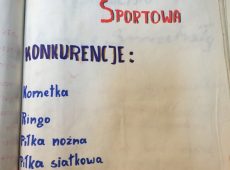 SPORTOWA
KONKURENCJE:
Kometka
Ringo
Piłka nożna
Piłka siatkowa